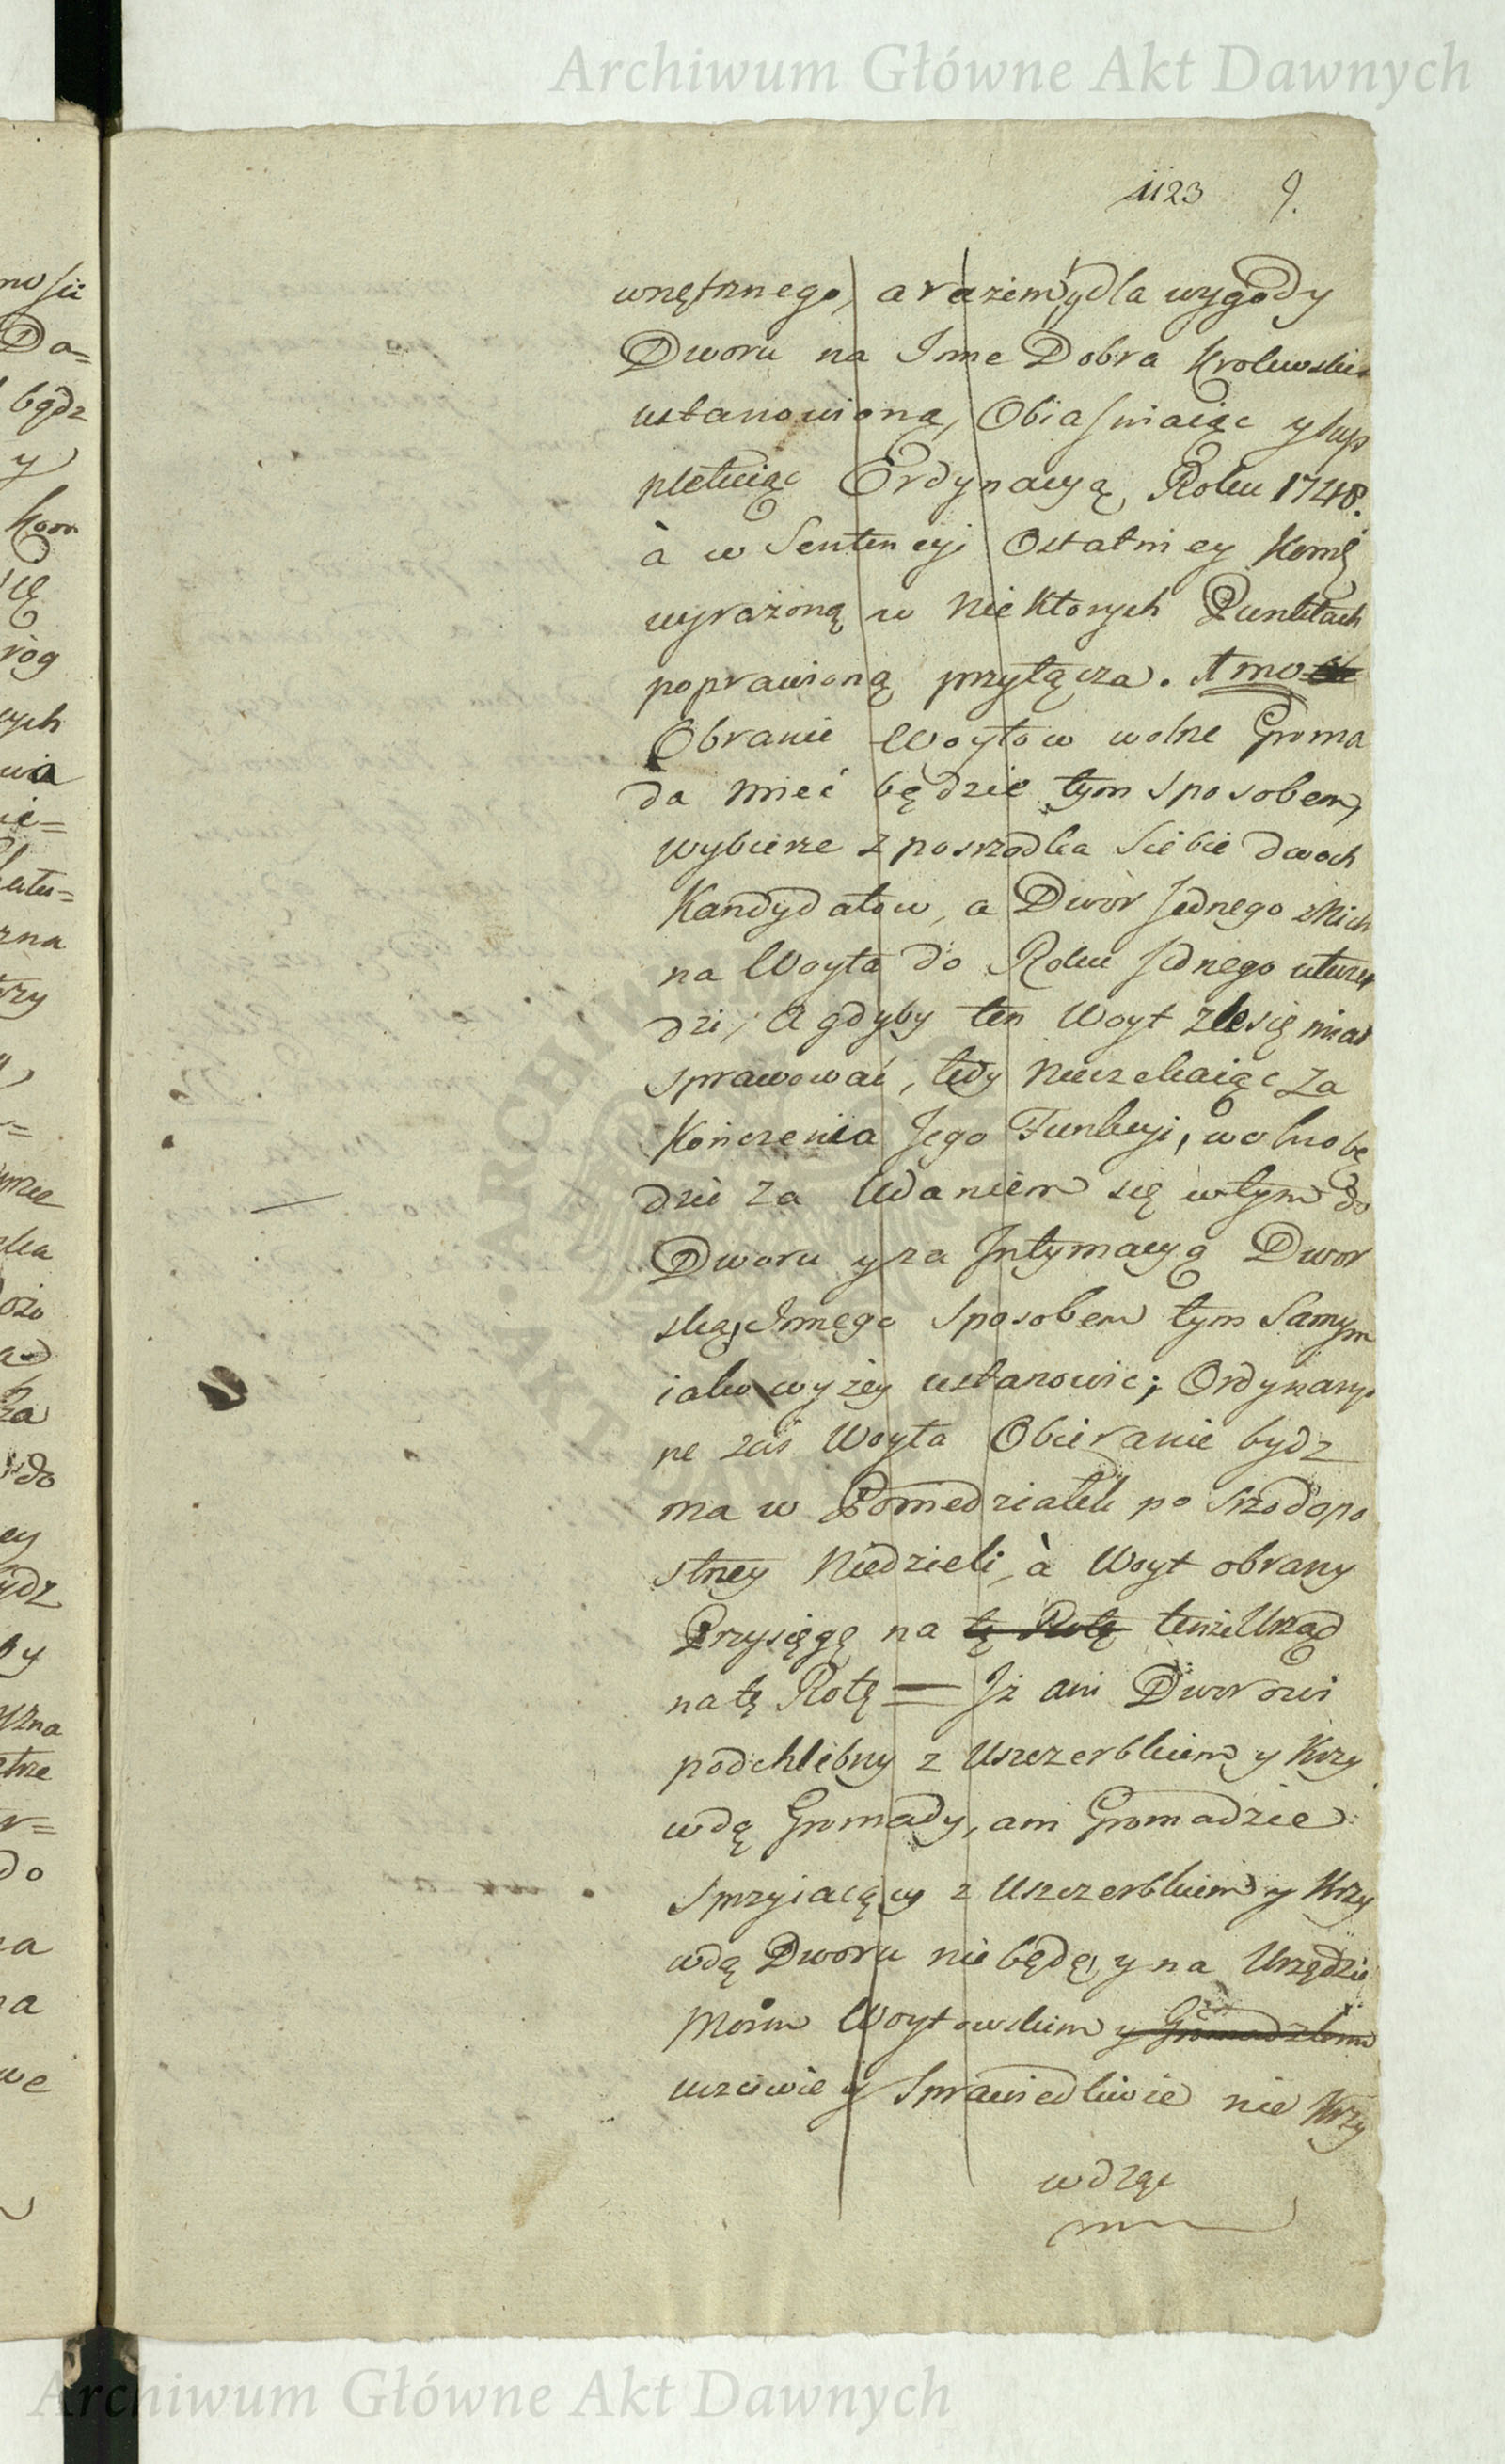 Archiwum Główne Akt Dawnych
1123 9.
wnętrznego, a razem y dla wygody
Dworu na Inne Dobra Krolewskie
ustanowioną, Obiasniaiąc y sup
pletuiąc Ordynacyą Roku 1748.
à w Sentencyi Ostatniey
wyrażoną w niektorych Punktach
poprawioną przyłącza. 1mo
Obranie Woytow wolne Groma
da mieć będzie tym sposobem,
wybierze z posrzodka siebie dwoch
Kandydatow, a Dwòr jednego z nich
na Woyta do Roku jednego utwier
dzi, A gdyby ten Woyt zle się miał
sprawować, tedy nieczekaiąc za
kończenia Jego Funkcyi, wolno bę
dzie za Udaniem się w tym do
Dworu y za Intymacyą Dwor
ską, Innego sposobem tym samym
iako wyżey ustanowic; Ordynaryi
ne zaś Woyta Obieranie bydz
ma w Poniedziałek po srzodopo
stney Niedzieli, à Woyt obrany
Przysięgę na tę Rotę tenże Urząd
na tę Rotę = Iż ani Dworowi
podchlebny z Uszczerbkiem y Krzy
wdą Gromady, ani Gromadzie
sprzyiaiący z Uszczerbkiem y Krzy
wdą Dworu nie będę, y na Urzędzie
Moim Woytowskim y Gromadzkim
uczciwie y Sprawiedliwie nie Krzy
wdząc
ARCHIWUM AKT DAWNYCH
Archiwum Główne Akt Dawnych